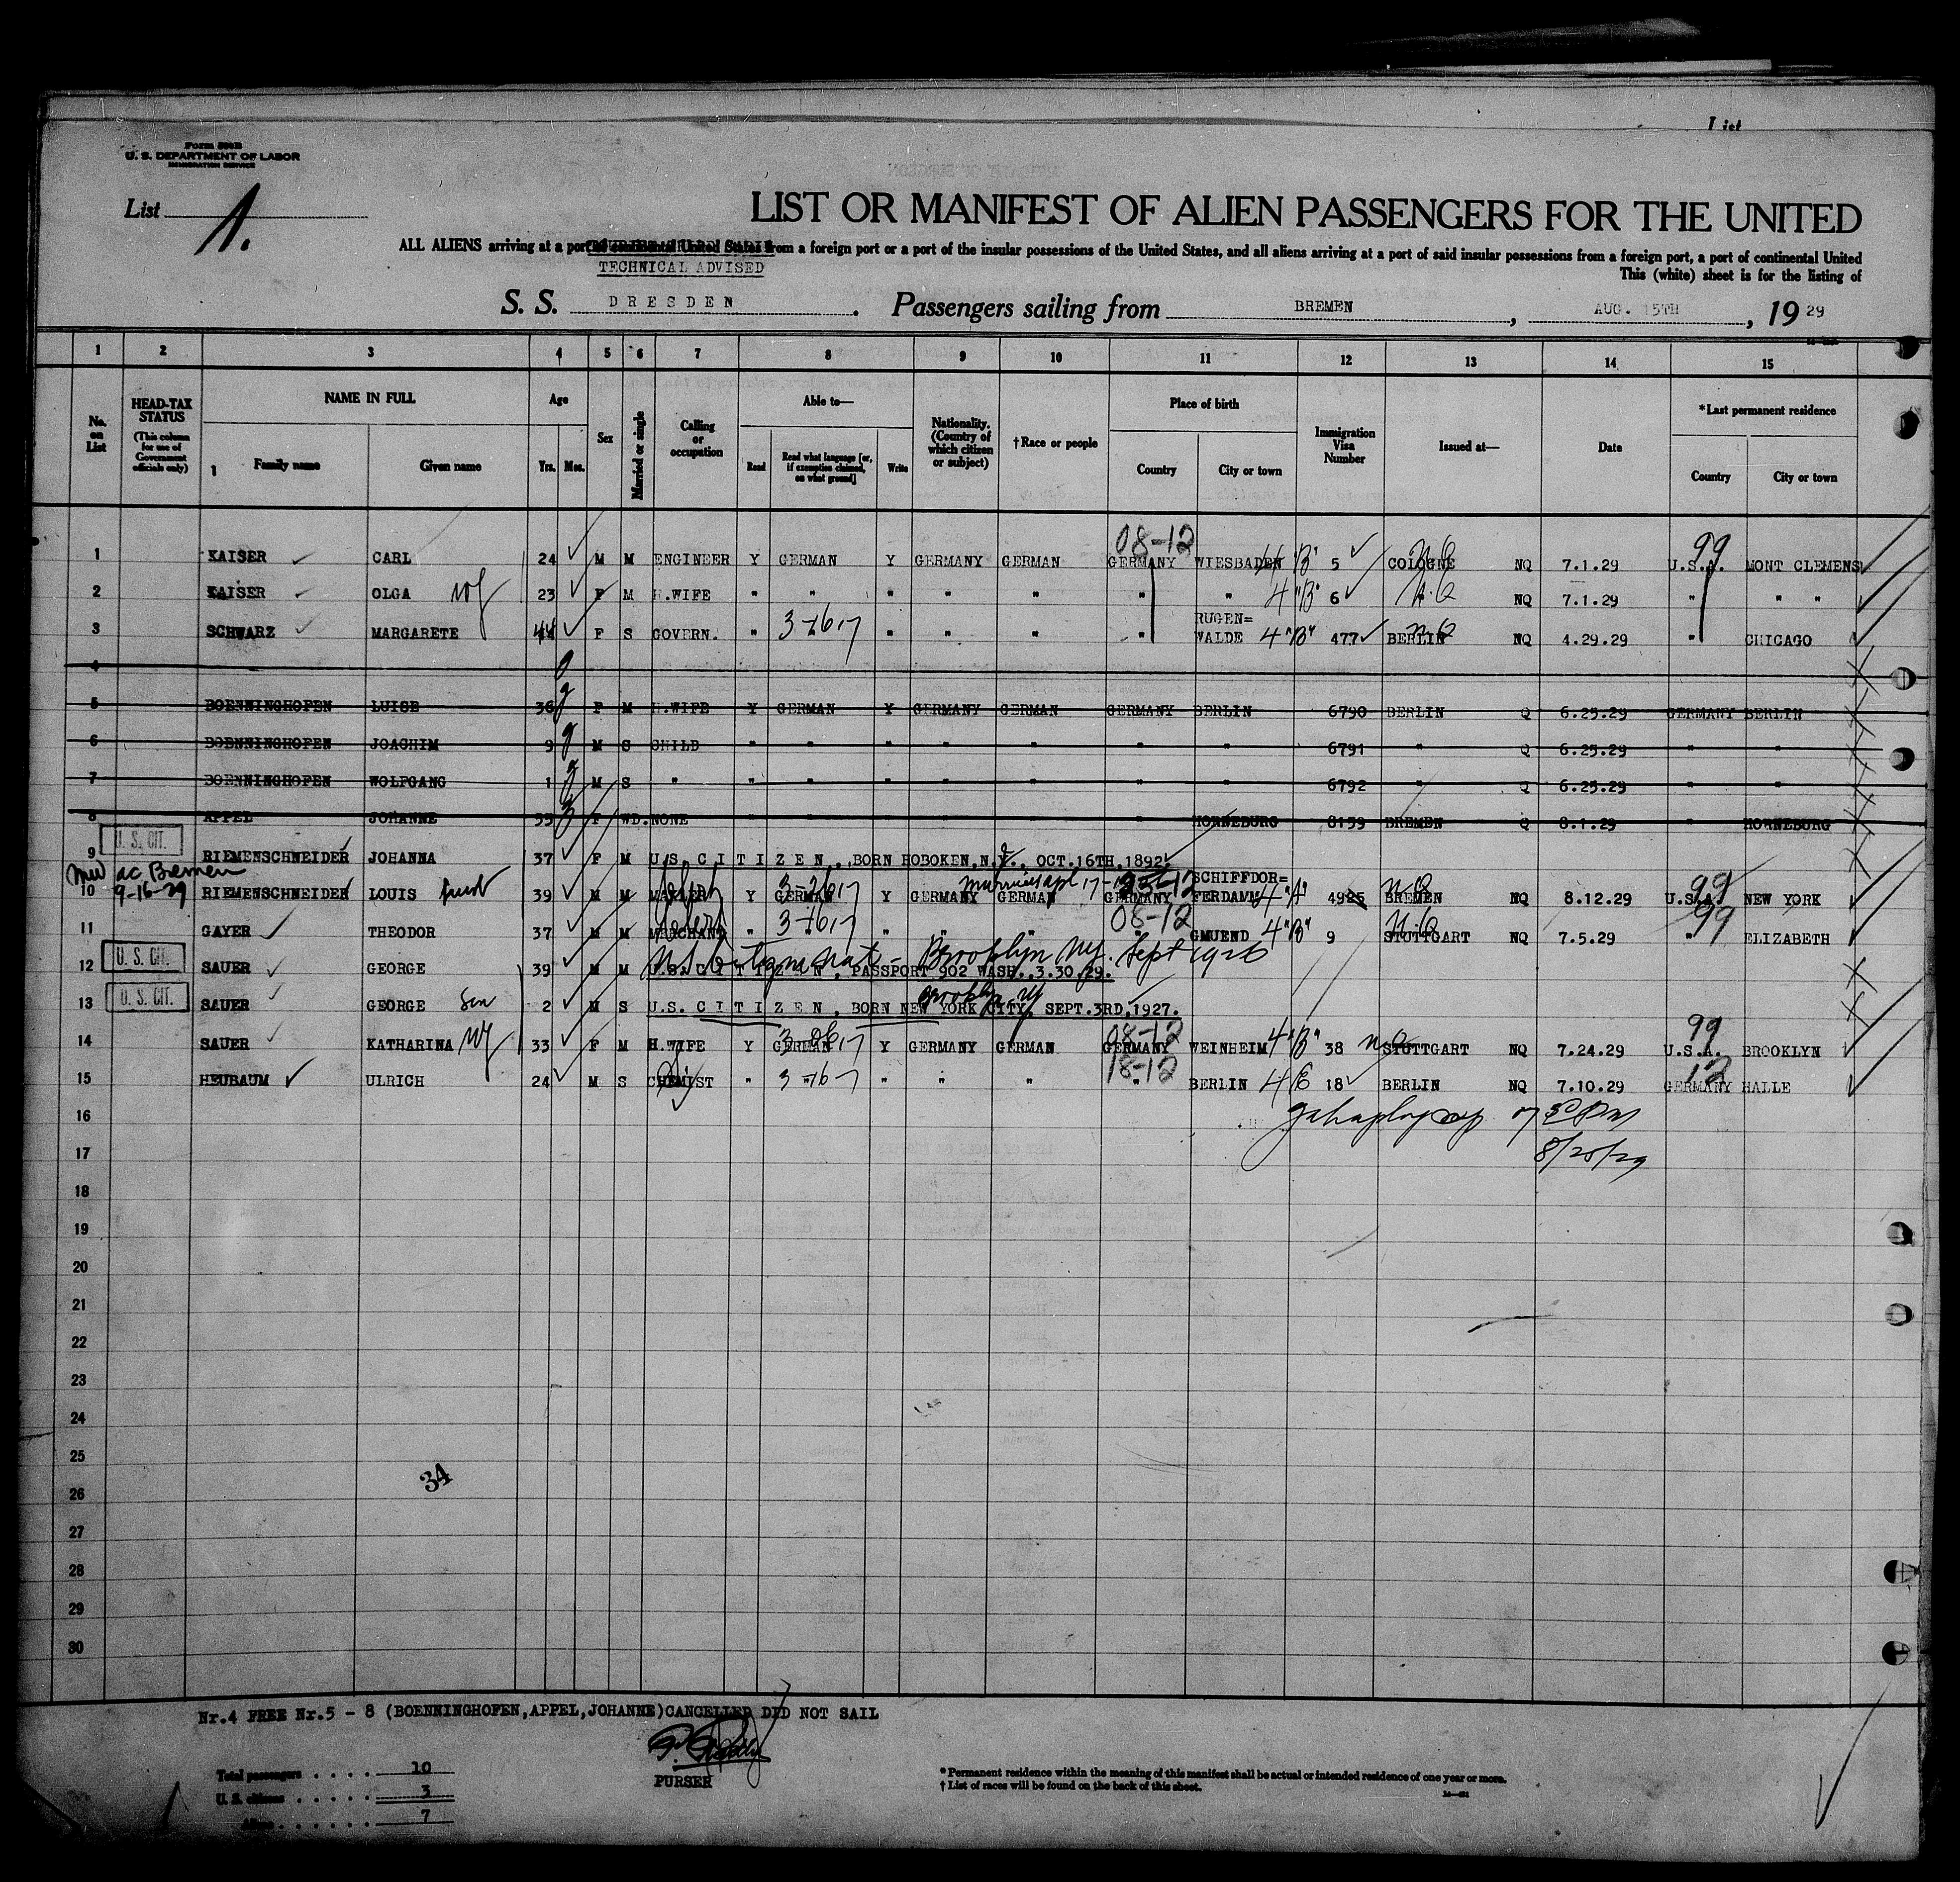 List
Form 500B
U. S. DEPARTMENT OF LABOR
IMMIGRATION SERVICE
List 1.
LIST OR MANIFEST OF ALIEN PASSENGERS FOR THE UNITED
ALL ALIENS arriving at a port of continental United States from a foreign port or a port of the insular possessions of the United States, and all aliens arriving at a port of said insular possessions from a foreign port, a port of continental United
TECHNICAL ADVISED
This (white) sheet is for the listing of
S. S. DRESDEN. Passengers sailing from BREMEN, AUG. 15TH, 1929
1 2 3 4 5 6 7 8 9 10 11 12 13 14 15
No. on List
HEAD-TAX STATUS (This column for use of Government officials only)
NAME IN FULL
Family name Given name
Age
Yrs. Mos.
Sex
Married or single
Calling or occupation
Able to—
Read Read what language [or, if exemption claimed, on what ground] Write
Nationality. (Country of which citizen or subject)
†Race or people
Place of birth
Country City or town
Immigration Visa Number
Issued at—
Date
*Last permanent residence
Country City or town
08-12 99
1 KAISER CARL 24 M M ENGINEER Y GERMAN Y GERMANY GERMAN GERMANY WIESBADEN 4"B" 5 COLOGNE NQ 7.1.29 U.S.A. MONT CLEMENS
2 KAISER OLGA wf 23 F M H.WIFE " " " " " " " 4"B" 6 " NQ 7.1.29 " " "
3 SCHWARZ MARGARETE 44 F S GOVERN. " 3-16-17 " " " " RUGEN= WALDE 4"B" 477 BERLIN NQ 4.29.29 " CHICAGO
4
5 BOENNINGHOFEN LUISE 36 F M H.WIFE Y GERMAN Y GERMANY GERMAN GERMANY BERLIN 6790 BERLIN Q 6.25.29 GERMANY BERLIN
6 BOENNINGHOFEN JOACHIM 9 M S CHILD " " " " " " " 6791 " Q 6.25.29 " "
7 BOENNINGHOFEN WOLFGANG 1 M S " " " " " " " " 6792 " Q 6.25.29 " "
8 APPEL JOHANNE 55 F WD. NONE " " " " " " HORNEBURG 8159 BREMEN Q 8.1.29 " HORNEBURG
U. S. CIT.
9 RIEMENSCHNEIDER JOHANNA 37 F M U.S. C I T I Z E N , BORN HOBOKEN,N.Y., OCT.16TH.1892.
ac Bremen
9-16-29
10 RIEMENSCHNEIDER LOUIS husb 39 M M Y GERMAN Y GERMANY GERMAN GERMANY SCHIFFDOR= FERDAMM 4"A" 4925 BREMEN NQ 8.12.29 U.S.A. 99 NEW YORK
11 GAYER THEODOR 37 M M MERCHANT " 3-16-17 " " " 08-12 GMUEND 4"B" 9 STUTTGART NQ 7.5.29 " 99 ELIZABETH
U. S. CIT.
US Citizen nat - Brooklyn NY. Sept 1926
12 SAUER GEORGE 39 M M U.S. C I T I Z E N , PASSPORT 902 WASH. 3.30.29.
U. S. CIT.
Brooklyn, NY
13 SAUER GEORGE Son 2 M S U.S. C I T I Z E N , BORN NEW YORK CITY, SEPT.3RD.1927.
08-12 99
14 SAUER KATHARINA wf 33 F M H.WIFE Y GERMAN Y GERMANY GERMAN GERMANY WEINHEIM 4"B" 38 STUTTGART NQ 7.24.29 U.S.A. BROOKLYN
18-12 12
15 HEUBAUM ULRICH 24 M S CHEMIST " 3-16-17 " " " " BERLIN 4C 18 BERLIN NQ 7.10.29 GERMANY HALLE
16
17 8/25/29
18
19
20
21
22
23
24
25
34
26
27
28
29
30
Nr.4 FREE Nr.5 - 8 (BOENNINGHOFEN,APPEL,JOHANNE)CANCELLED DID NOT SAIL
PURSER
Total passengers . . . . 10
U. S. citizens . . . . . 3
Aliens . . . . . . 7
* Permanent residence within the meaning of this manifest shall be actual or intended residence of one year or more.
† List of races will be found on the back of this sheet.